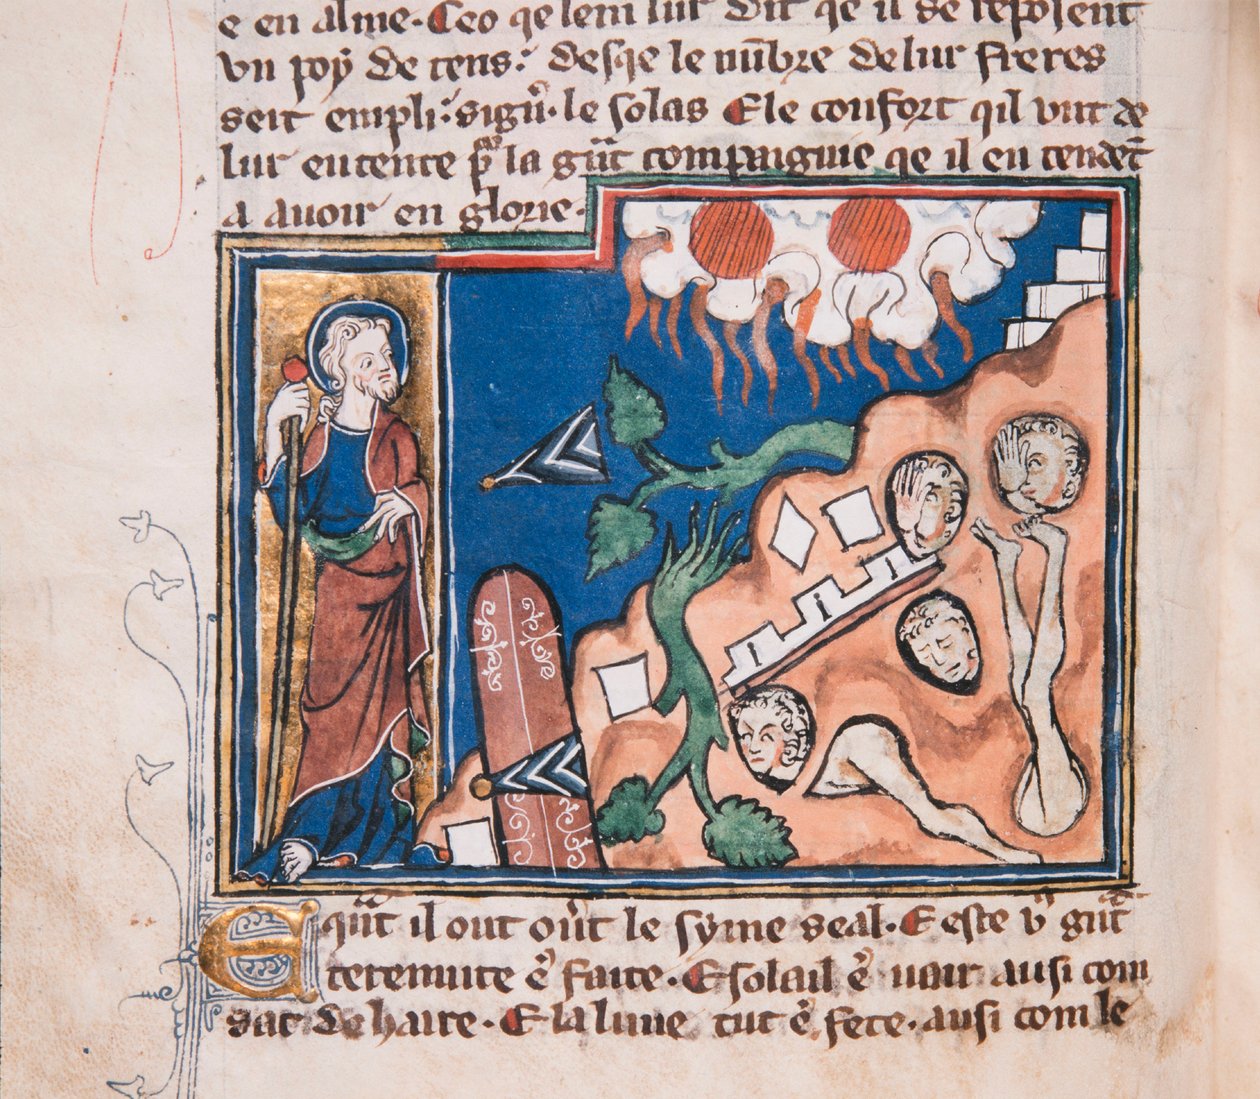 e en alme. Ceo qe lem lur dit qe il se reposent
vn poy de tens: desqe le nūbre de lur freres
seit empli: sigñ. le solas E le confort qil vnt de
lur entente p la gñt compaignie qe il en tendēt
a auoir en glorie.
E qñt il out oūt le syme seal. E este vꝰ gñt
teremute ē faite. E solail ē nair ausi com
sac de haire. E la lune tut ē fete. ausi com le